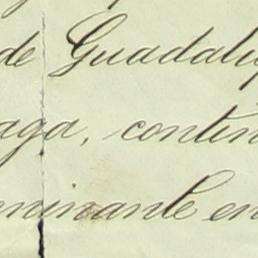 de Guadalup
aga, contin
eninante en